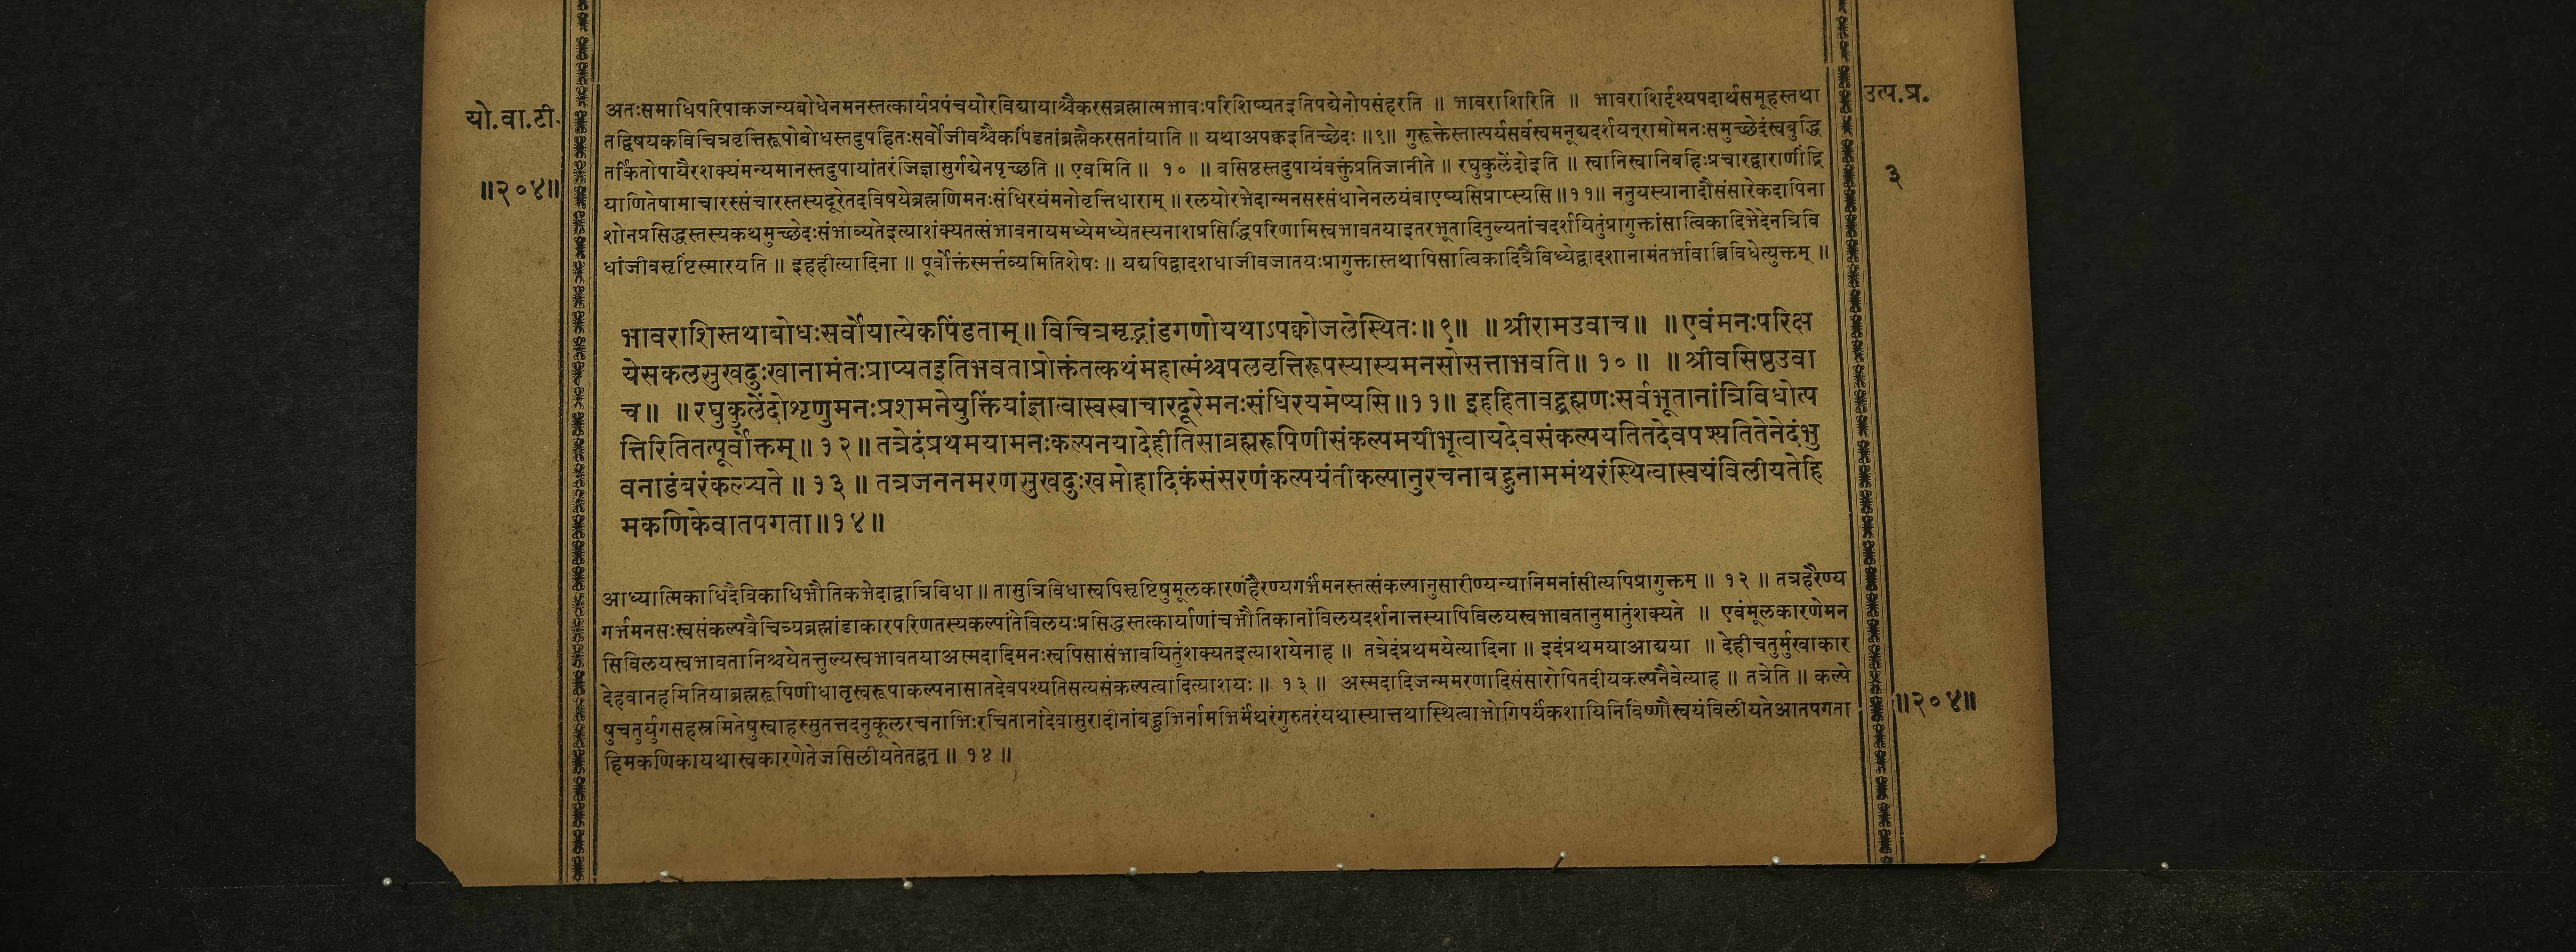 यो.वा.टी.
॥२०४॥
उत्प.प्र.
३
अतःसमाधिपरिपाकजन्यबोधेनमनस्तत्कार्यप्रपंचयोरविद्यायाश्चैकरसब्रह्मात्मभावःपरिशिष्यतइतिपद्येनोपसंहरति ॥ भावराशिरिति ॥ भावराशिर्दृश्यपदार्थसमूहस्तथा
तद्विषयकविचित्रवृत्तिरूपोबोधस्तदुपहितःसर्वोजीवश्चैकपिंडतांब्रह्मैकरसतांयाति ॥ यथाअपक्कइतिच्छेदः ॥९॥ गुरूक्तेस्तात्पर्यसर्वस्वमनूद्यदर्शयन्रामोमनःसमुच्छेदंस्वबुद्धि
तर्कितोपायैरशक्यंमन्यमानस्तदुपायांतरंजिज्ञासुर्गद्येनपृच्छति ॥ एवमिति ॥ १० ॥ वसिष्ठस्तदुपायंवक्तुंप्रतिजानीते ॥ रघुकुलेंदोइति ॥ स्वानिस्वानिबहिःप्रचारद्वाराणींद्रि
याणितेषामाचारस्संचारस्तस्यदूरेतदविषयेब्रह्मणिमनःसंधिरयंमनोवृत्तिधाराम् ॥ रलयोरभेदान्मनसस्संधानेनलयंवाएष्यसिप्राप्स्यसि ॥११॥ ननुयस्यानादौसंसारेकदापिना
शोनप्रसिद्धस्तस्यकथमुच्छेदःसंभाव्यतेइत्याशंक्यतत्संभावनायमध्येमध्येतस्यनाशप्रसिद्धिंपरिणामिस्वभावतयाइतरभूतादितुल्यतांचदर्शयितुंप्रागुक्तांसात्विकादिभेदेनत्रिवि
धांजीवसृष्टिंस्मारयति ॥ इहहीत्यादिना ॥ पूर्वोक्तंस्मर्त्तव्यमितिशेषः ॥ यद्यपिद्वादशधाजीवजातयःप्रागुक्तास्तथापिसात्विकादित्रैविध्येद्वादशानामंतर्भावात्त्रिविधेत्युक्तम् ॥
भावराशिस्तथाबोधःसर्वोयात्येकपिंडताम् ॥ विचित्रमृद्भांडगणोयथाऽपक्कोजलेस्थितः ॥९॥ ॥ श्रीरामउवाच ॥ ॥ एवंमनःपरिक्ष
येसकलसुखदुःखानामंतःप्राप्यतइतिभवताप्रोक्तंतत्कथंमहात्मंश्चपलवृत्तिरूपस्यास्यमनसोसत्ताभवति ॥ १० ॥ ॥ श्रीवसिष्ठउवा
च ॥ ॥ रघुकुलेंदोशृणुमनःप्रशमनेयुक्तिंयांज्ञात्वास्वस्वाचारदूरेमनःसंधिरयमेष्यसि ॥११॥ इहहितावद्ब्रह्मणःसर्वभूतानांत्रिविधोत्प
त्तिरितितत्पूर्वोक्तम् ॥ १२ ॥ तत्रेदंप्रथमयामनःकल्पनयादेहीतिसाब्रह्मरूपिणीसंकल्पमयीभूत्वायदेवसंकल्पयतितदेवपश्यतितेनेदंभु
वनाडंबरंकल्प्यते ॥ १३ ॥ तत्रजननमरणसुखदुःखमोहादिकंसंसरणंकल्पयंतीकल्पानुरचनाबहुनाममंथरंस्थित्वास्वयंविलीयतेहि
मकणिकेवातपगता ॥१४॥
आध्यात्मिकाधिदैविकाधिभौतिकभेदाद्वात्रिविधा ॥ तासुत्रिविधास्वपिसृष्टिषुमूलकारणंहैरण्यगर्भंमनस्तत्संकल्पानुसारीण्यन्यानिमनांसीत्यपिप्रागुक्तम् ॥ १२ ॥ तत्रहैरण्य
गर्भमनसःस्वसंकल्पवैचित्र्यब्रह्मांडाकारपरिणतस्यकल्पांतेविलयःप्रसिद्धस्तत्कार्याणांचभौतिकानांविलयदर्शनात्तस्यापिविलयस्वभावतानुमातुंशक्यते ॥ एवंमूलकारणेमन
सिविलयस्वभावतानिश्चयेतत्तुल्यस्वभावतयाअस्मदादिमनःस्वपिसासंभावयितुंशक्यतइत्याशयेनाह ॥ तत्रेदंप्रथमयेत्यादिना ॥ इदंप्रथमयाआद्यया ॥ देहीचतुर्मुखाकार
देहवानहमितियाब्रह्मरूपिणीधातृस्वरूपाकल्पनासातदेवपश्यतिसत्यसंकल्पत्वादित्याशयः ॥ १३ ॥ अस्मदादिजन्ममरणादिसंसारोपितदीयकल्पनैवेत्याह ॥ तत्रेति ॥ कल्पे
षुचतुर्युगसहस्रमितेषुस्वाहस्सुतत्तदनुकूलरचनाभिःरचितानांदेवासुरादीनांबहुभिर्नामभिर्मंथरंगुरुतरंयथास्यात्तथास्थित्वाभोगिपर्यंकशायिनिविष्णौस्वयंविलीयतेआतपगता
हिमकणिकायथास्वकारणेतेजसिलीयतेतद्वत् ॥ १४ ॥
॥२०४॥